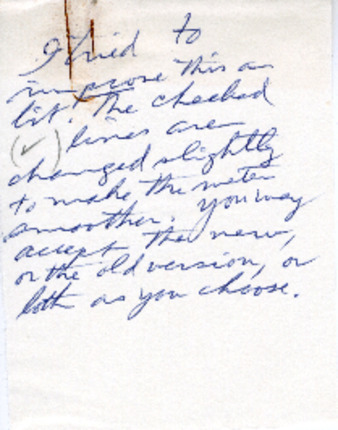 I tried to
improve this a
bit. The checked
(✓) lines are
changed slightly
to make the meter
smoother. You may
accept the new,
or the old version, or
both as you choose.